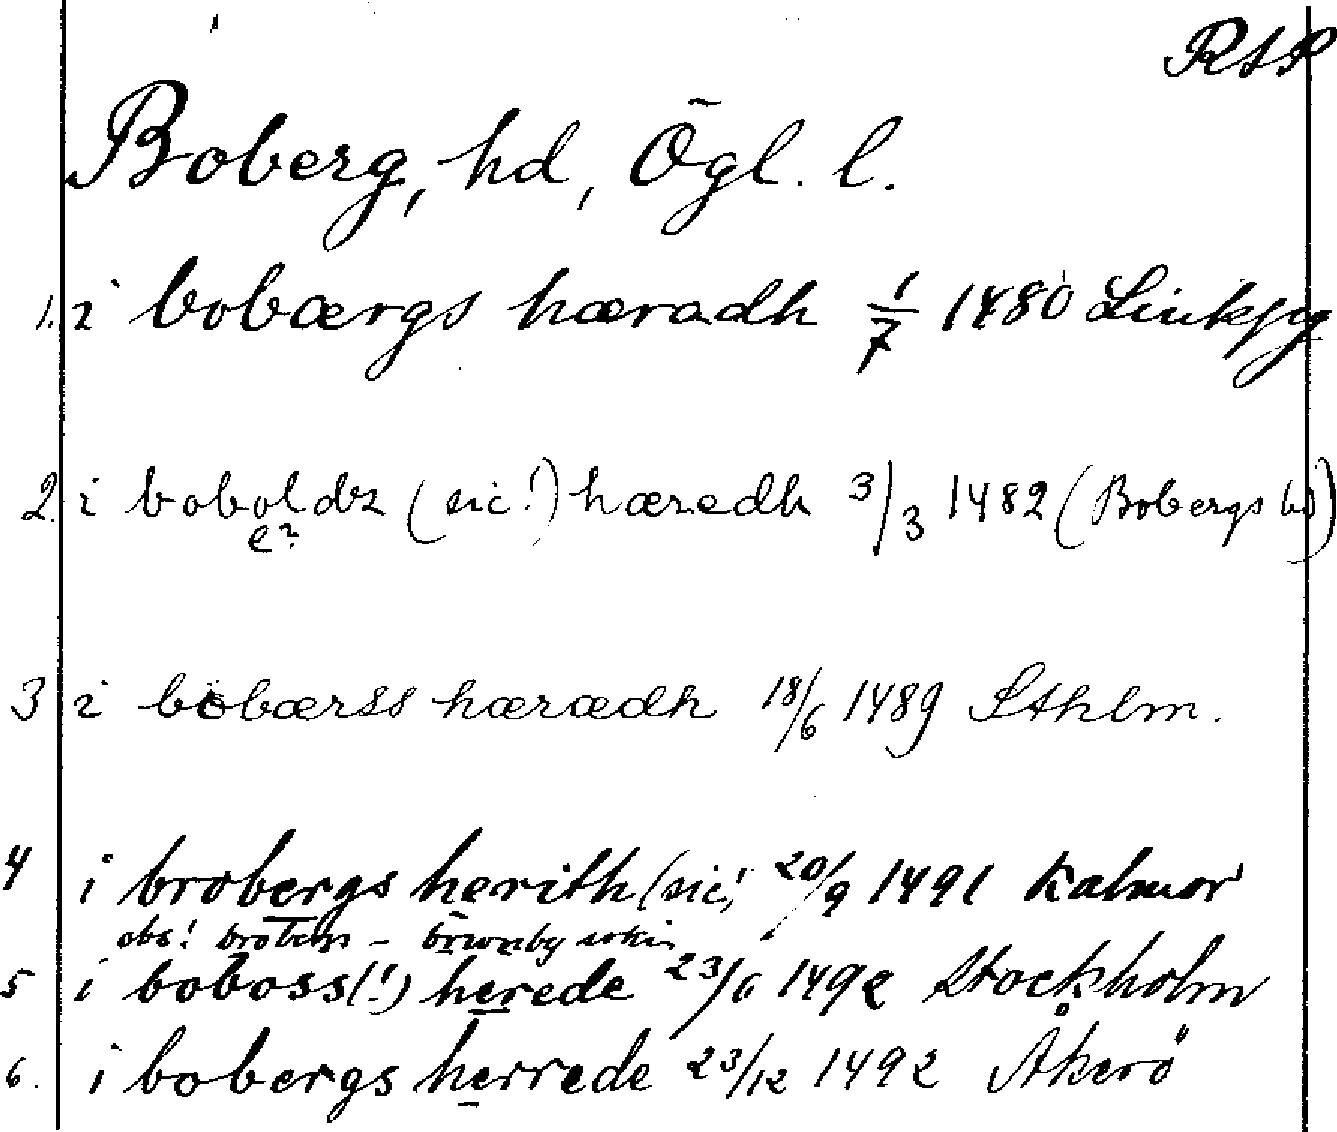 RAP
Boberg, hd, Ögl. l.
1. i bobærgs hæradh 1/7 1480 Linkpg
2. i boboldz (sic!) hæredh 3/3 1482 (Bobergs hd)
e?
3 i bobærss hærædh 18/6 1489 Sthlm.
4 i brobergs herith (sic! 20/9 1491 Kalmar
obs!
5 i boboss(!) herede 23/6 1492 Stockholm
6. i bobergs herrede 23/12 1492 Åkerö